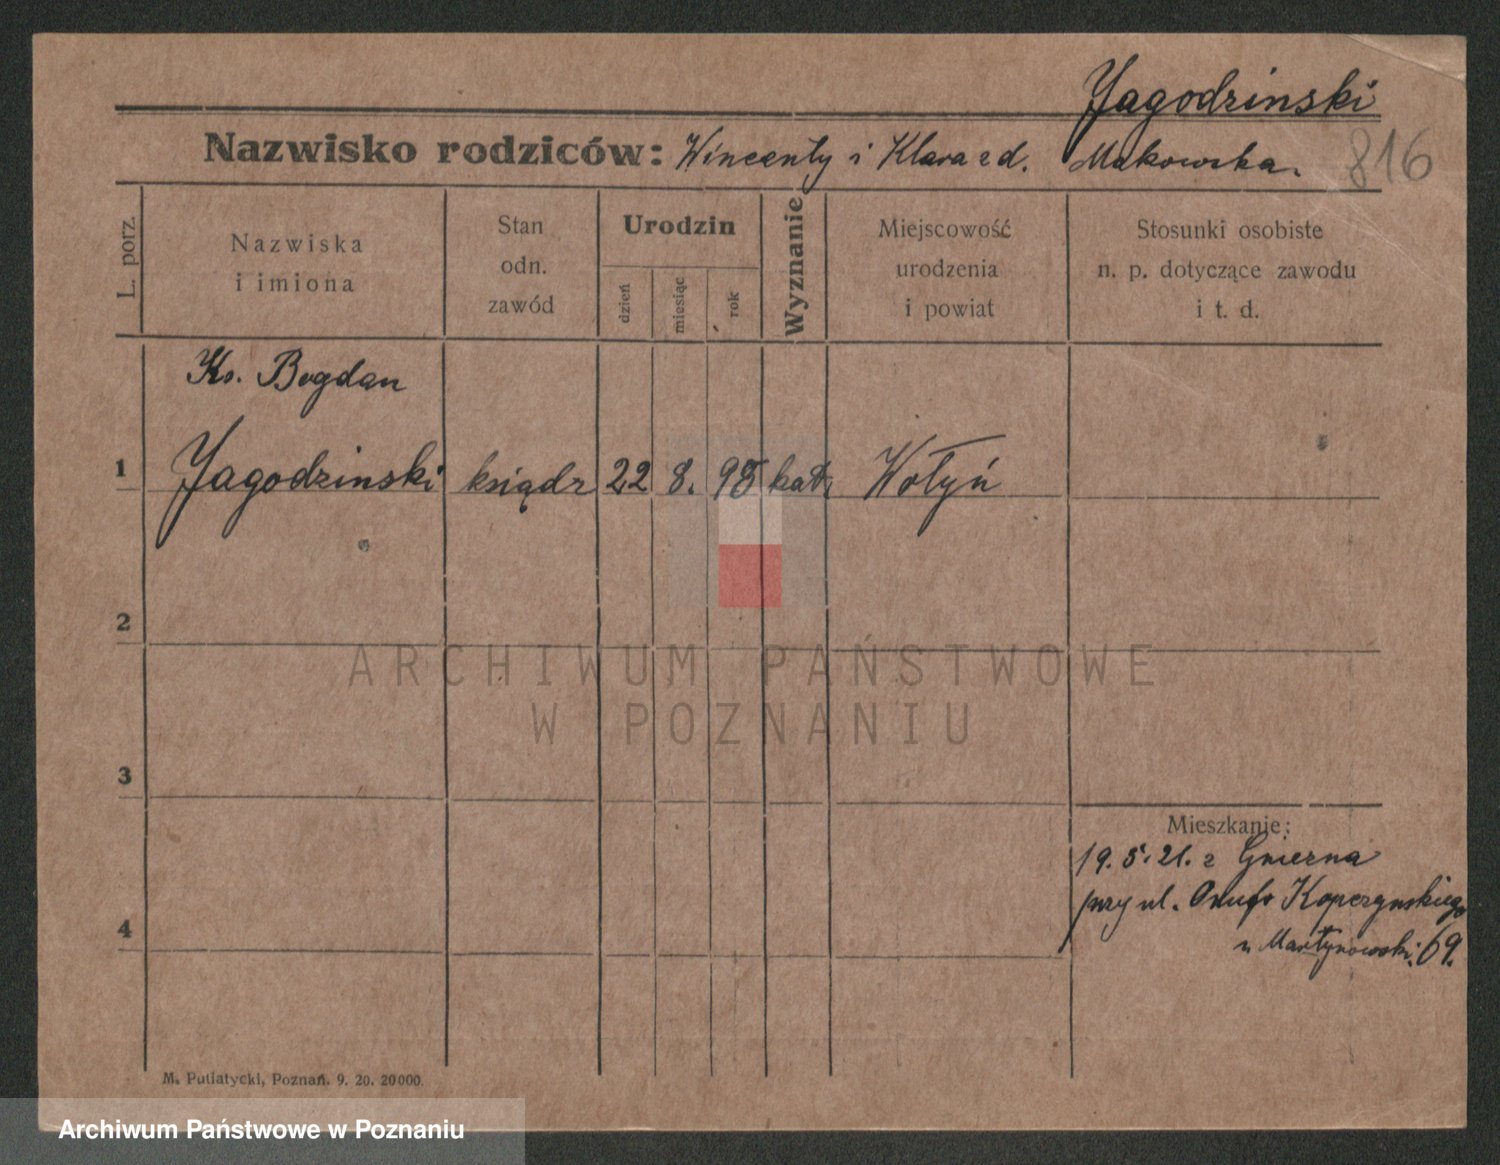 Jagodzinski
Nazwisko rodziców: Wincenty i Klara zd. Makowska.
816
L. porz.
Nazwiska
i imiona
Stan
odn.
zawód
Urodzin
dzień
miesiąc
rok
Wyznanie
Miejscowość
urodzenia
i powiat
Stosunki osobiste
n. p. dotyczące zawodu
i t. d.
Ks. Bogdan
1 Jagodzinski ksiądz 22 8. 95 kat. Wołyń
2
ARCHIWUM PAŃSTWOWE
W POZNANIU
3
Mieszkanie:
19. 5. 21. z Gniezna
przy ul. Kopczynskiego
4
u Martynowski. 69.
M. Putiatycki, Poznań. 9. 20. 20000.
Archiwum Państwowe w Poznaniu